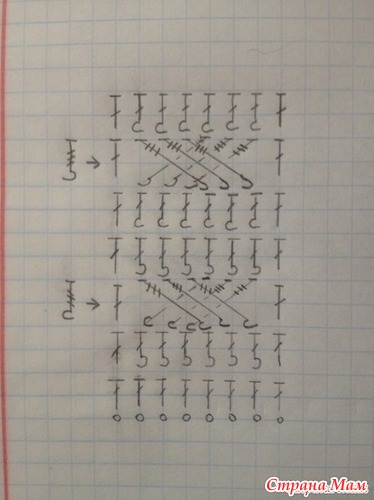 Страна Мам